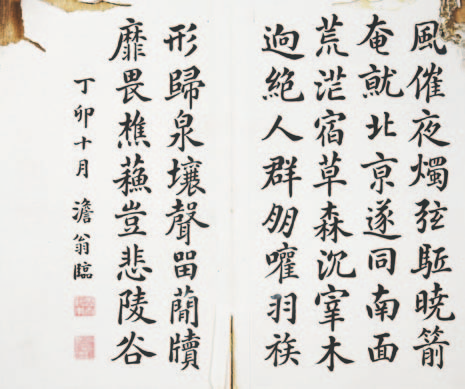 風催夜燭弦駈暁箭
奄就北亰遂同南面
荒茫宿草森沉宰木
逈絶人群朋嚾羽族
形歸泉壤聲㽞蕳牘
靡畏樵蘓豈悲陵谷
丁卯十月澹翁臨